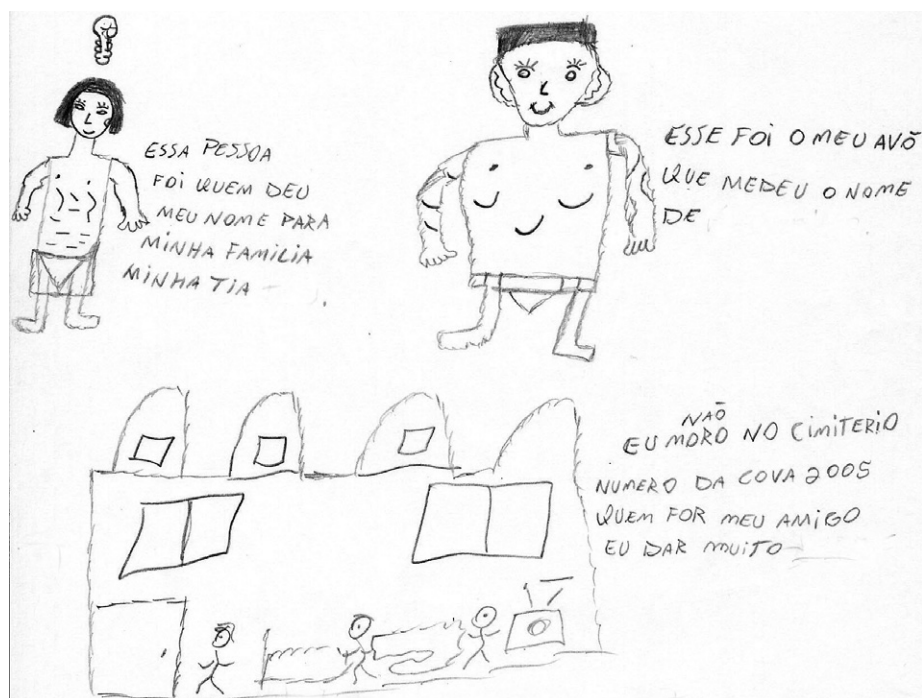 ESSA PESSOA
FOI QUEM DEU
MEU NOME PARA
MINHA FAMILIA
MINHA TIA
ESSE FOI O MEU AVÕ
QUE MEDEU O NOME
DE
NÃO
EU MORO NO CIMITERIO
NUMERO DA COVA 2005
QUEM FOR MEU AMIGO
EU DAR MUITO